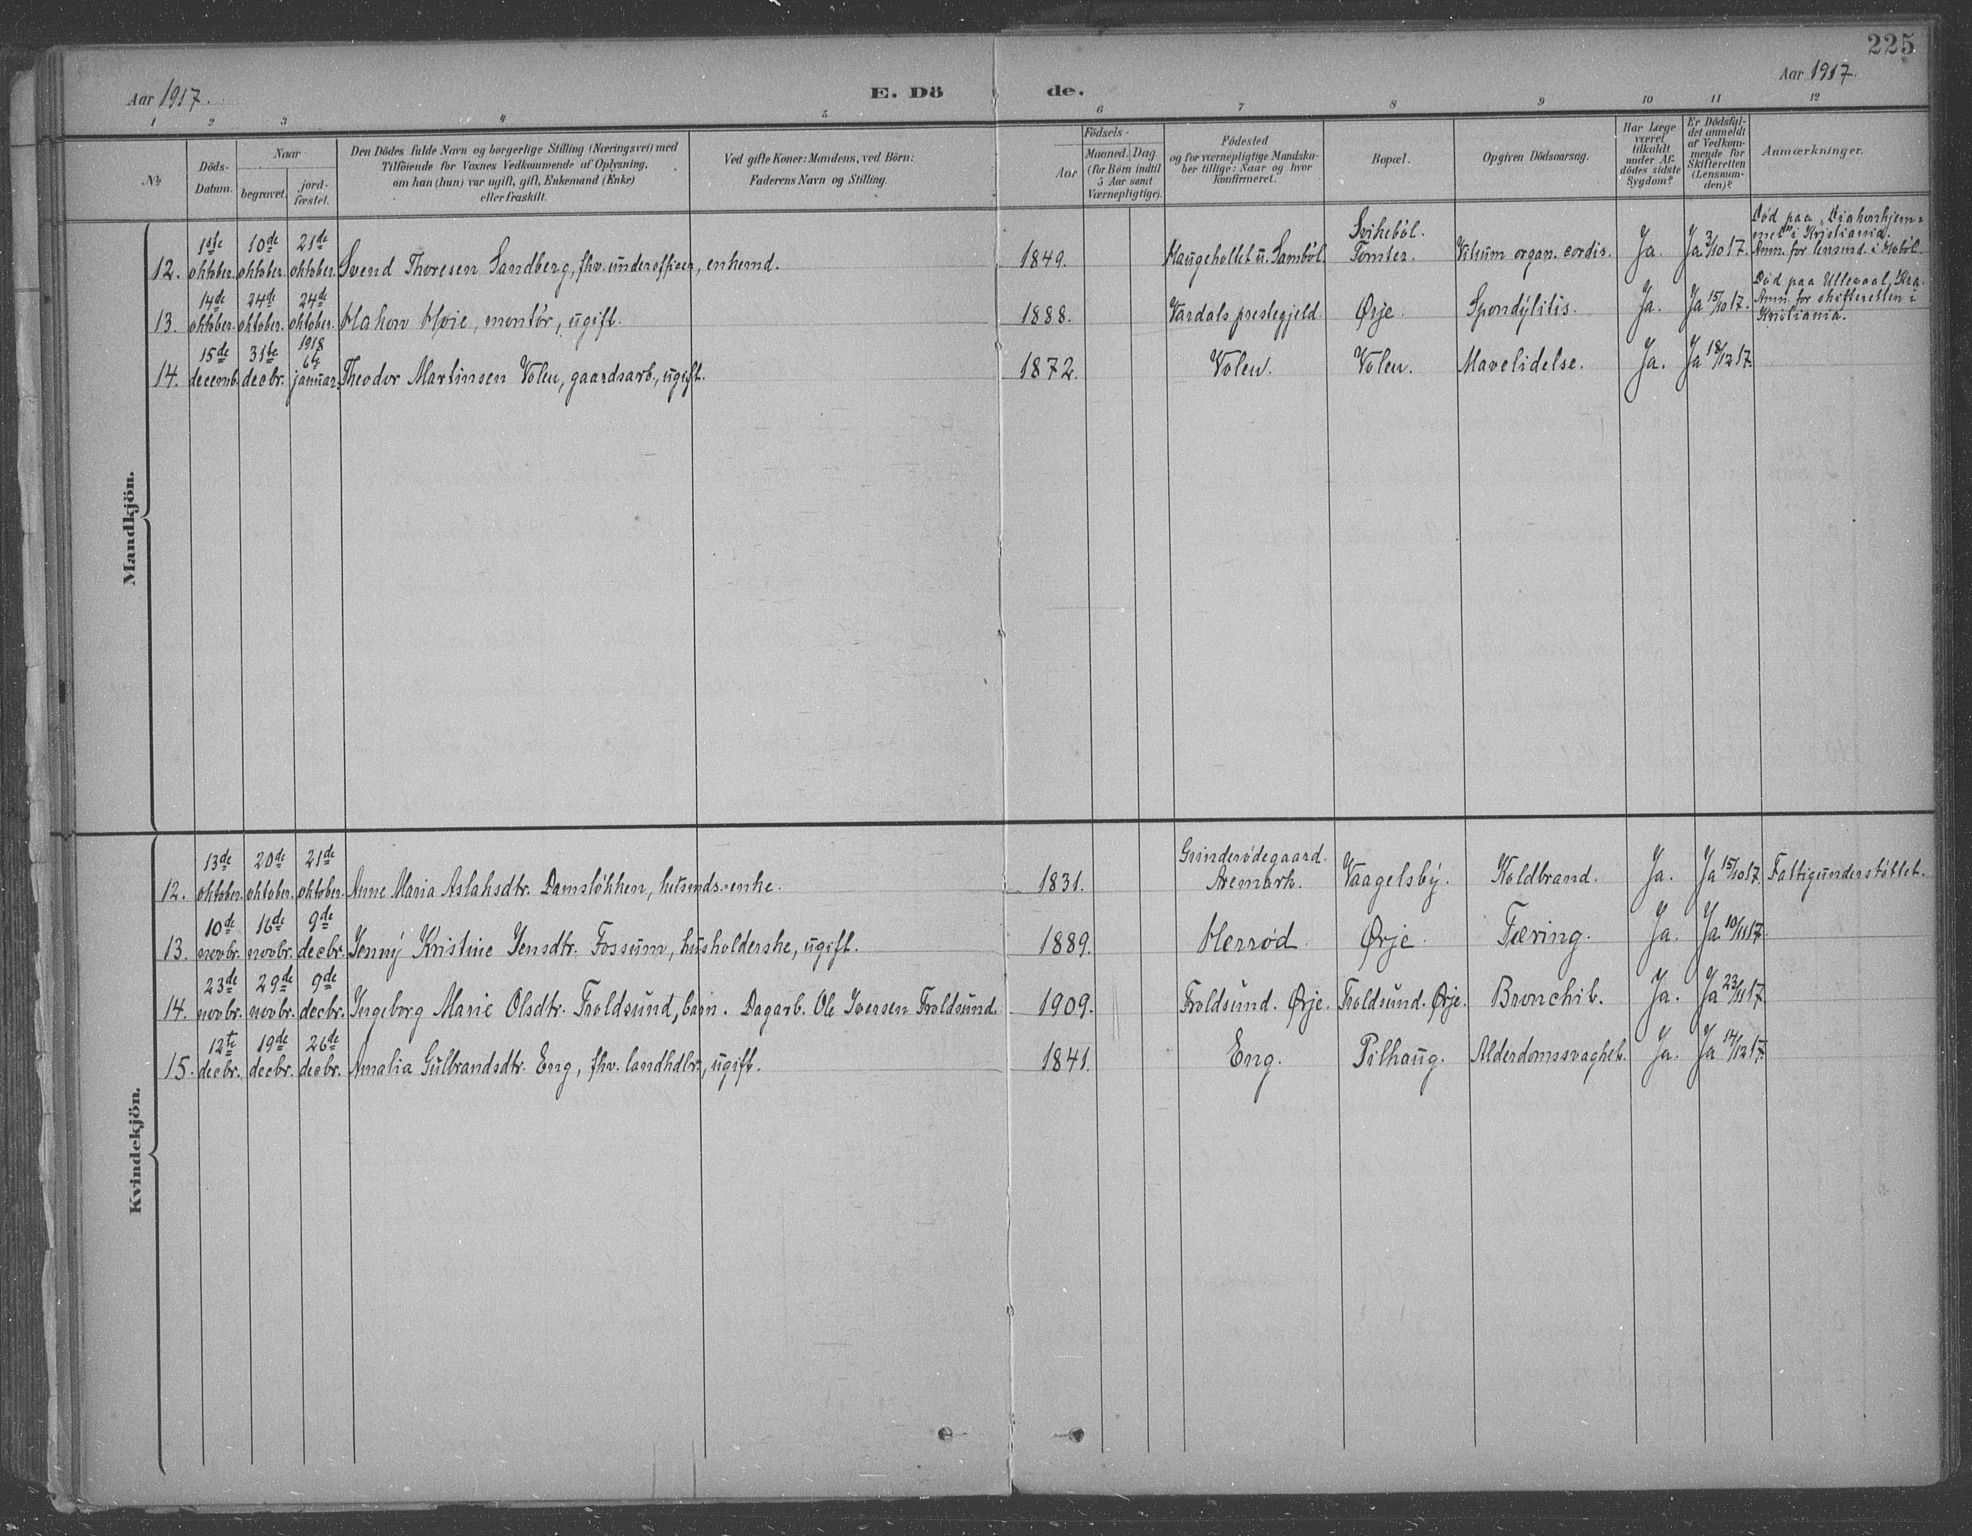 225
Aar 1917.
E. Dö de.
Aar 1917.
1 2 3 4 5 6 7 8 9 10 11 12
№
Döds-Datum.
Naar
begravet.
jord-fæstet.
Den Dödes fulde Navn og borgerlige Stilling (Næringsvei) med
Tilföiende for Voxnes Vedkommende af Oplysning,
om han (hun) var ugift, gift, Enkemand (Enke)
eller fraskilt.
Ved gifte Koner: Mandens, ved Börn:
Faderens Navn og Stilling.
Födsels-
Aar
Maaned. Dag.
(for Börn indtil
5 Aar samt
Værnepligtige).
Födested
og for værnepligtige Mandska-
ber tillige: Naar og hvor
konfirmeret.
Bopæl.
Opgiven Dödsaarsag.
Har Læge
været
tilkaldt
under Af-
dödes sidste
Sygdom?
Er Dödsfal-
det anmeldt
af Vedkom-
mende for
Skifteretten
(Lensman-
den)?
Anmærkninger.
Mandkjön.
12. 1ste oktober. 10de oktober. 21de oktober. Svend Thoresen Sandberg, fhv. underofficer, enkemd. 1849. Haugeholtet u. Sambøl. Svikebøl. Tomter. Vitium organ. cordis. Ja. Ja 3/10 17. Død paa "Diakonhjem-
met" i Kristiania.
Anm. for lensmd. i Hobøl.
13. 14de oktober. 24de oktober. 24de oktober. Hakon Hoie, montør, ugift. 1888. Vardals prestegjeld. Ørje. Spondylitis. Ja. Ja 15/10 17. Død paa Ullevaal, Kra.
Anm. for skifteretten i
Kristiania.
14. 15de decemb. 31te decbr. 1918 6te januar. Theodor Martinsen Volen, gaardsarb., ugift. 1872. Volen. Volen. Mavelidelse. Ja. Ja 18/12 17.
Kvindekjön.
12. 13de oktober. 20de oktober. 21de oktober. Anne Maria Aslaksdtr. Damsløkken, husmds.enke. 1831. Grinderødegaard. Aremark. Vaagelsby. Koldbrand. Ja. Ja 15/10 17. Fattigunderstøttet.
13. 10de novbr. 16de novbr. 9de decbr. Jenny Kristine Jensdtr. Fossum, husholderske, ugift. 1889. Herrød. Ørje. Tæring. Ja. Ja 10/11 17.
14. 23de novbr. 29de novbr. 9de decbr. Ingeborg Marie Olsdtr. Troldsund, barn. Dagarb. Ole Iversen Troldsund. 1909. Troldsund. Ørje. Troldsund. Ørje. Bronchit. Ja. Ja 23/11 17.
15. 12te decbr. 19de decbr. 26de decbr. Amalia Gulbrandsdtr. Eng, fhv. landhdlr., ugift. 1841. Eng. Pilhaug. Alderdomssvaghet. Ja. Ja 14/12 17.